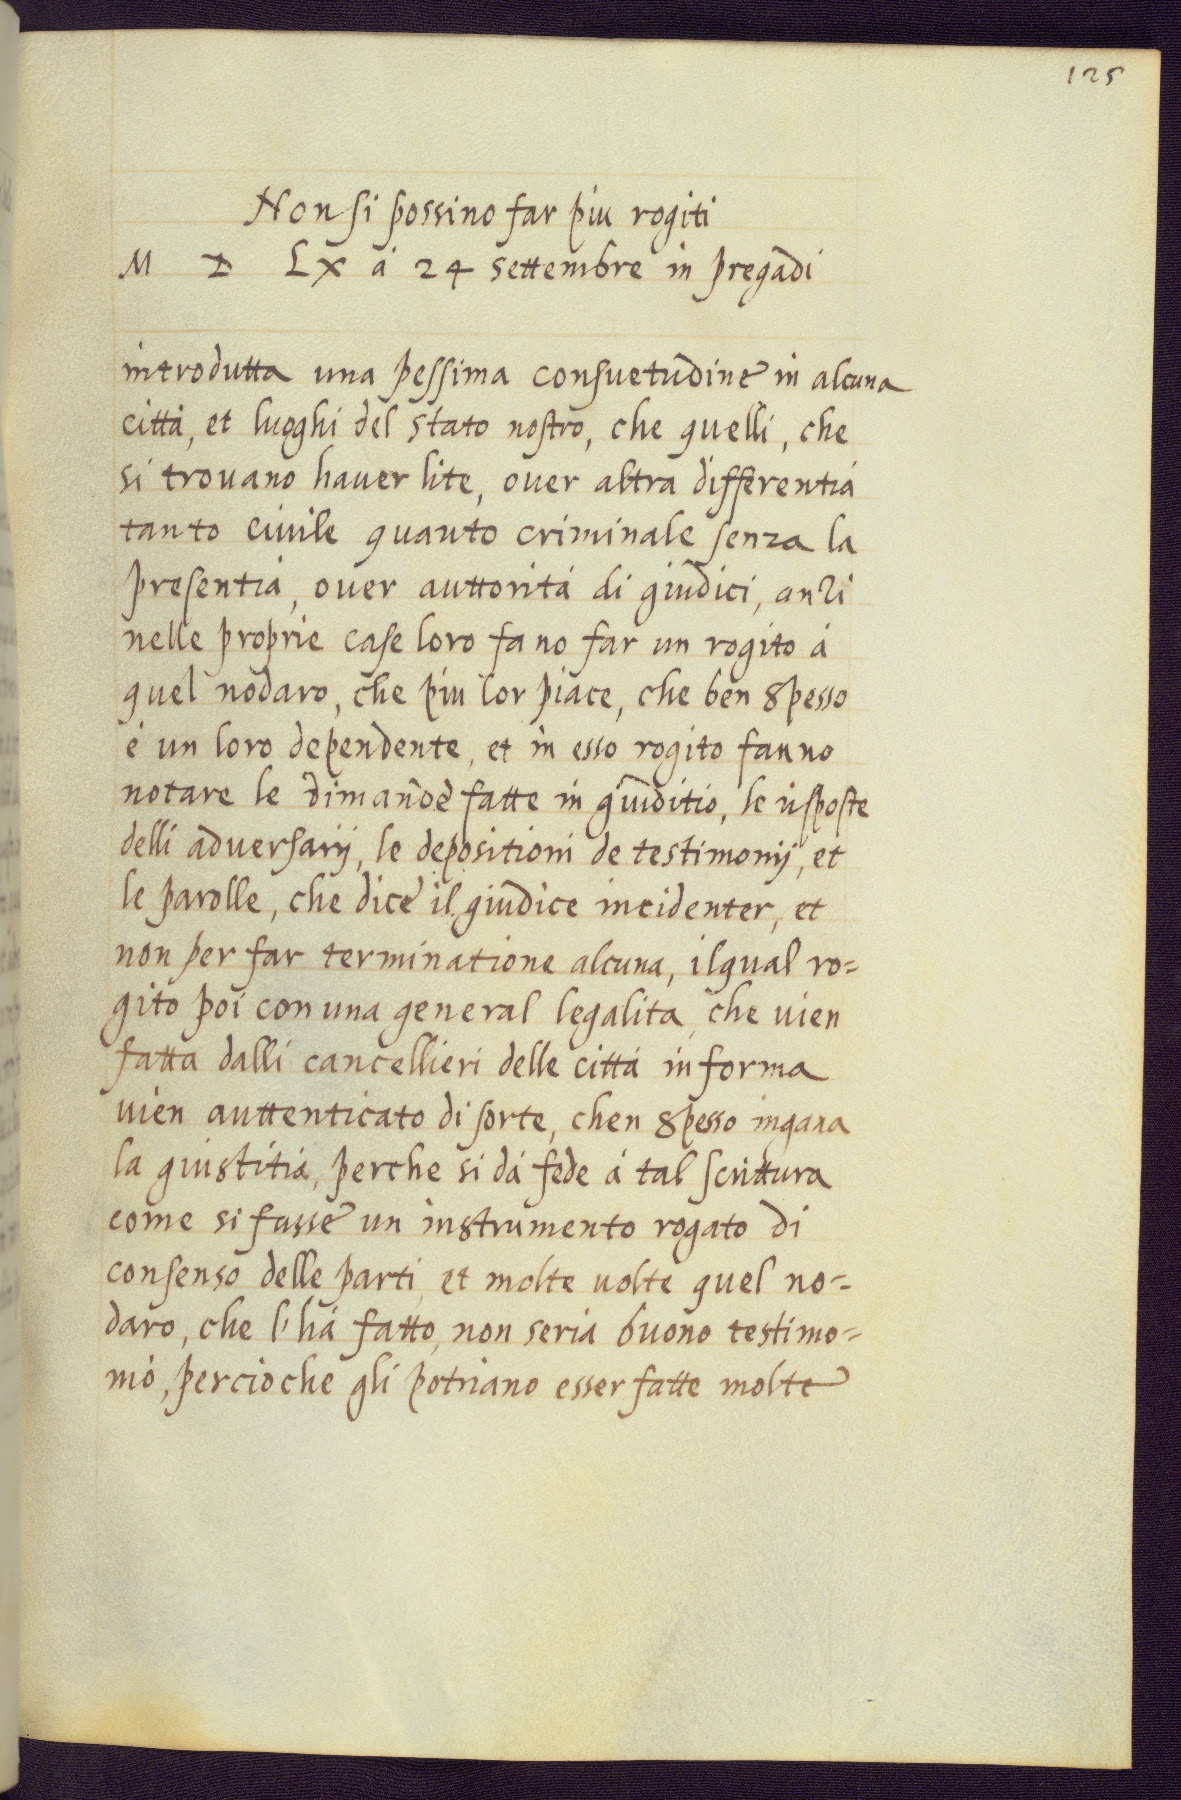 125
Non si possino far piu rogiti
M D LX à 24 settembre in pregadi
introdutta una pessima consuetudine in alcuna
città, et luoghi del stato nostro, che quelli, che
si trouano hauer lite, ouer altra differentia
tanto ciuile quanto criminale senza la
presentia, ouer auttorità di giudici, anzi
nelle proprie case loro fano far un rogito à
quel nodaro, che piu lor piace, che ben spesso
è un loro dependente, et in esso rogito fanno
notare le dimande fatte in giuditio, le risposte
delli aduersarij, le depositioni de testimonij, et
le parolle, che dice il giudice incidenter, et
non per far terminatione alcuna, ilqual ro=
gito poi con una general legalita, che uien
fatta dalli cancellieri delle città in forma
uien auttenticato di sorte, chen spesso ingana
la giustitia, perche si dà fede à tal scrittura
come si fusse un instrumento rogato di
consenso delle parti, et molte uolte quel no=
daro, che l'hà fatto, non seria buono testimo=
nio, percioche gli potriano esser fatte molte